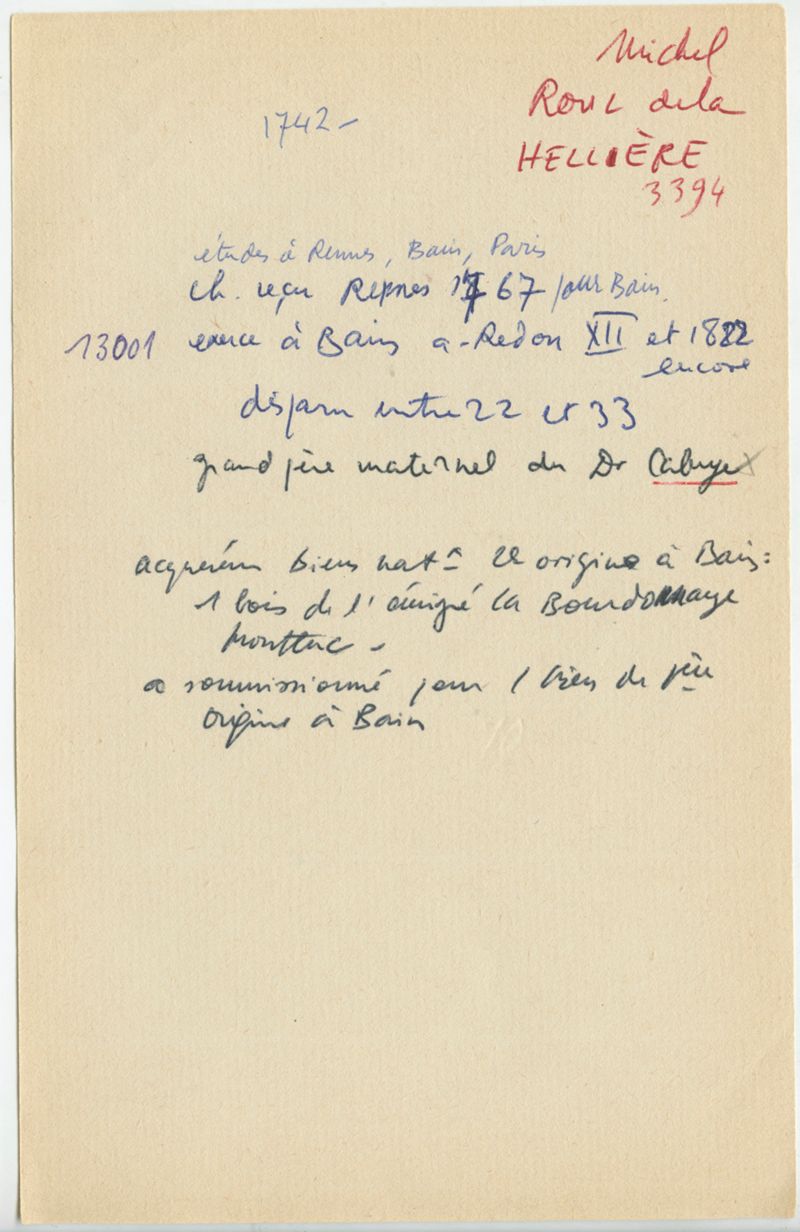 Michel
ROUL de la
HELLIÈRE
3394
1742 –
études à Rennes, Bain, Paris
ch. reçu Rennes 1767 pour Bain.
13001 exerce à Bains-a-Redon XII et 1822
encore
disparu entre 22 et 33
grand père maternel du Dr Cabuye
acquéreur biens natx 2e origine à Bain :
1 bois de l'émigré La Bourdonnaye
Montluc –
a soumissionné pour 1 bien de 1ère
origine à Bain